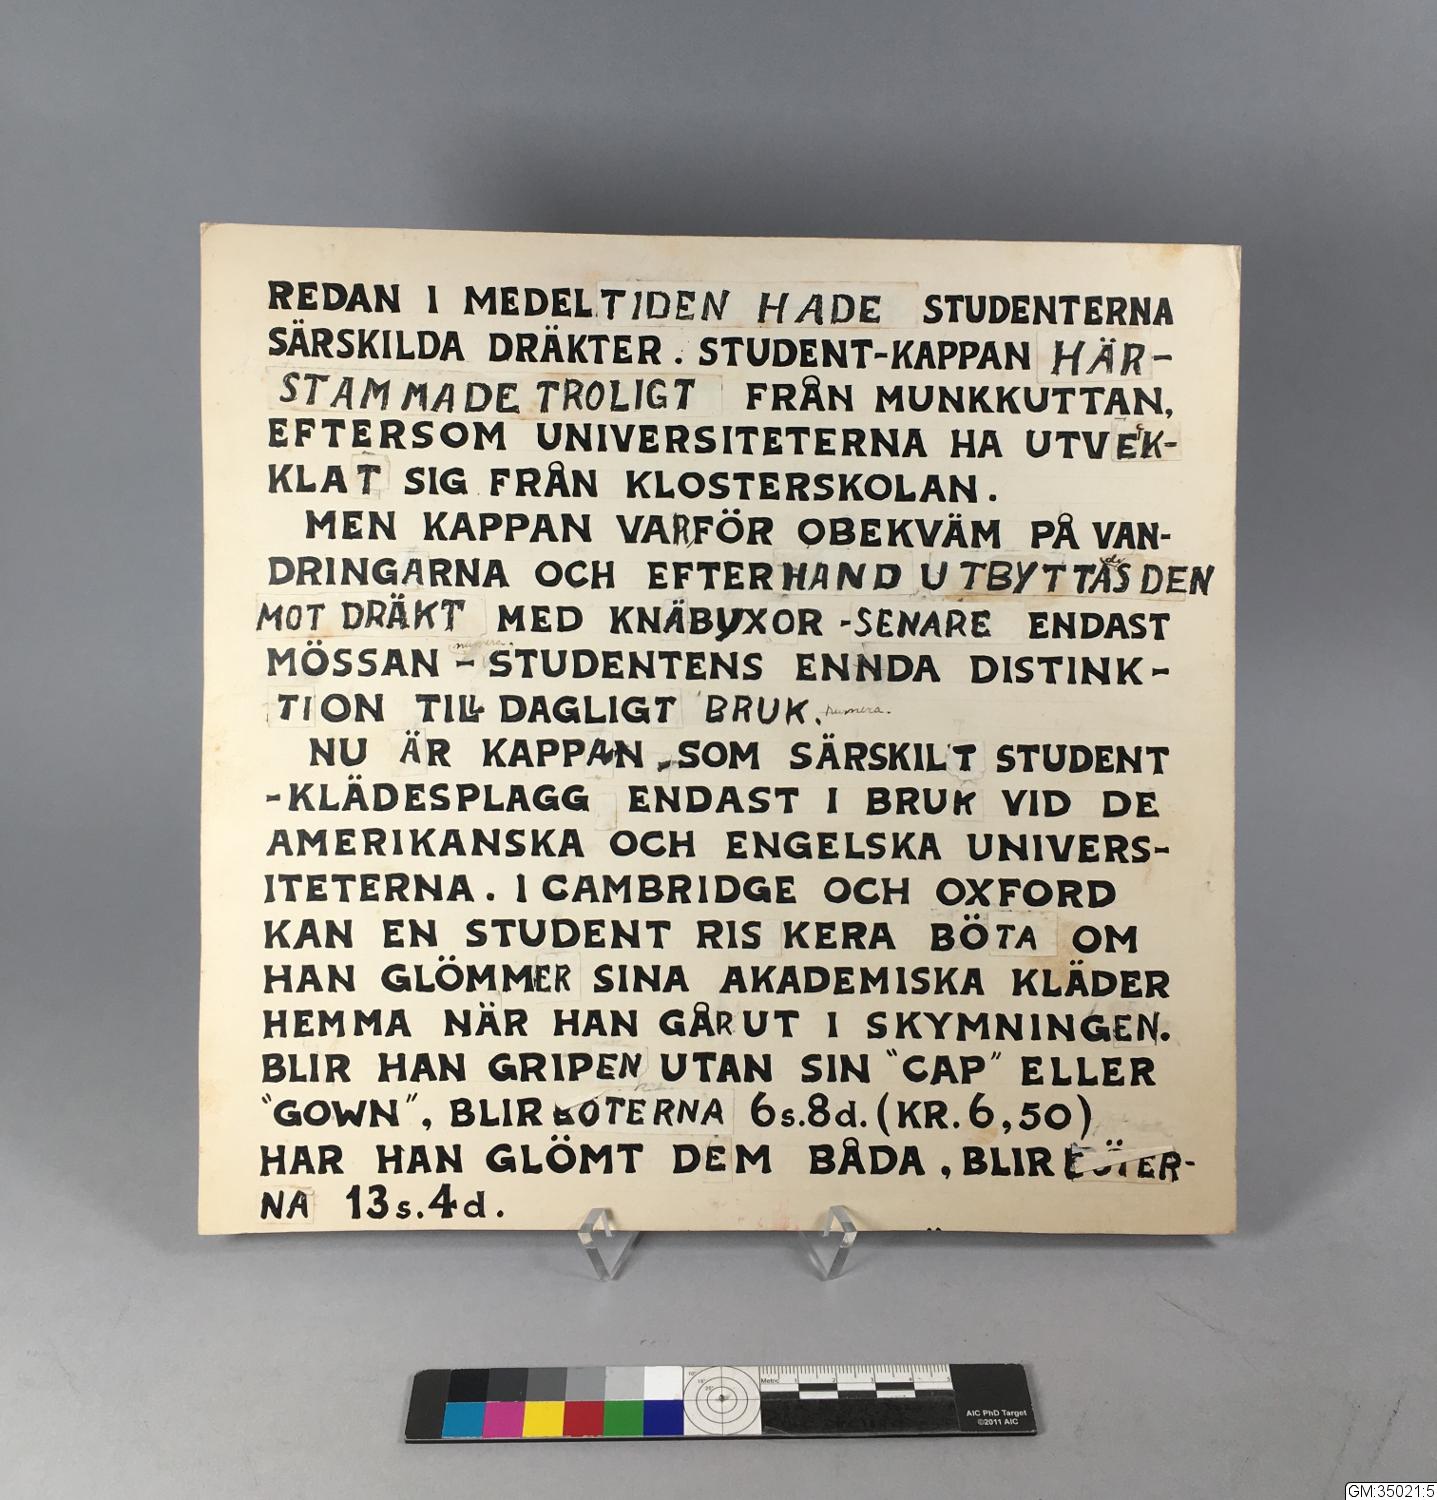 REDAN I MEDELTIDEN HADE STUDENTERNA
SÄRSKILDA DRÄKTER. STUDENT-KAPPAN HÄR-
STAMMADE TROLIGT FRÅN MUNKKUTTAN,
EFTERSOM UNIVERSITETERNA HA UTVEK-
KLAT SIG FRÅN KLOSTERSKOLAN.
MEN KAPPAN VARFÖR OBEKVÄM PÅ VAN-
DRINGARNA OCH EFTERHAND UTBYTTAS DEN
MOT DRÄKT MED KNÄBYXOR - SENARE ENDAST
numera.
MÖSSAN - STUDENTENS ENNDA DISTINK-
TION TILL DAGLIGT BRUK. numera.
NU ÄR KAPPAN, SOM SÄRSKILT STUDENT
-KLÄDESPLAGG ENDAST I BRUK VID DE
AMERIKANSKA OCH ENGELSKA UNIVERS-
ITETERNA. I CAMBRIDGE OCH OXFORD
KAN EN STUDENT RISKERA BÖTA OM
HAN GLÖMMER SINA AKADEMISKA KLÄDER
HEMMA NÄR HAN GÅR UT I SKYMNINGEN.
BLIR HAN GRIPEN UTAN SIN "CAP" ELLER
"GOWN", BLIR BÖTERNA 6s.8d. (KR. 6,50)
HAR HAN GLÖMT DEM BÅDA, BLIR BÖTER-
NA 13s.4d.
Metric 1 2 3 4 5
AIC PhD Target
©2011 AIC
GM:35021:5